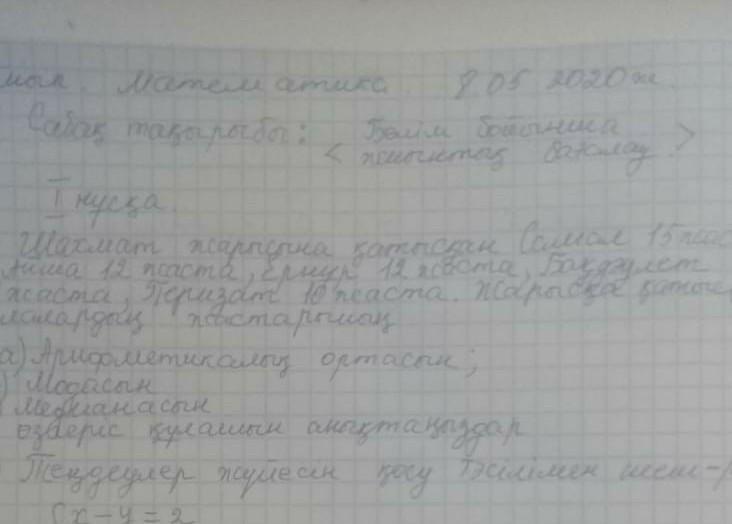 Математика 8 05 2020ж.
Сабақ тақырыбы: Бөлім бойынша
< жиынтық бағалау >
I нұсқа.
Шахмат жарысына қатысқан 15 жас
12 жаста, Ернұр 12 жаста, Бақдәулет
жаста, Перизат 10 жаста. Жарысқа қатыс
жастарының
а) Арифметикалық ортасын;
) Модасын
Медианасын
өзгеріс құлашын анықтаңыздар
Теңдеулер жүйесін қосу тәсілімен шеш-
{x-y=2